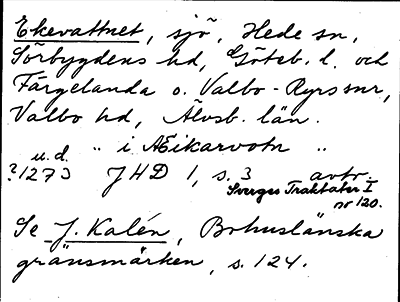 Ekevattnet, sjö, Hede sn,
Sörbygdens hd, Göteb. l. och
Färgelanda o. Valbo-Ryrs snr,
Valbo hd, Älvsb. län.
u.d. " i Æikarvotn "
?1273 JHD 1, s. 3 avtr.
Sveriges Traktater I
nr 120.
Se J. Kalén, Bohuslänska
gränsmärken, s. 124.